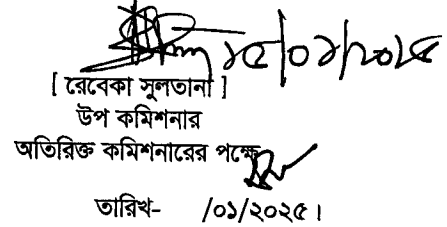 ১৫/০১/২০২৫
[ রেবেকা সুলতানা ]
উপ কমিশনার
অতিরিক্ত কমিশনারের পক্ষে
তারিখ- /০১/২০২৫।